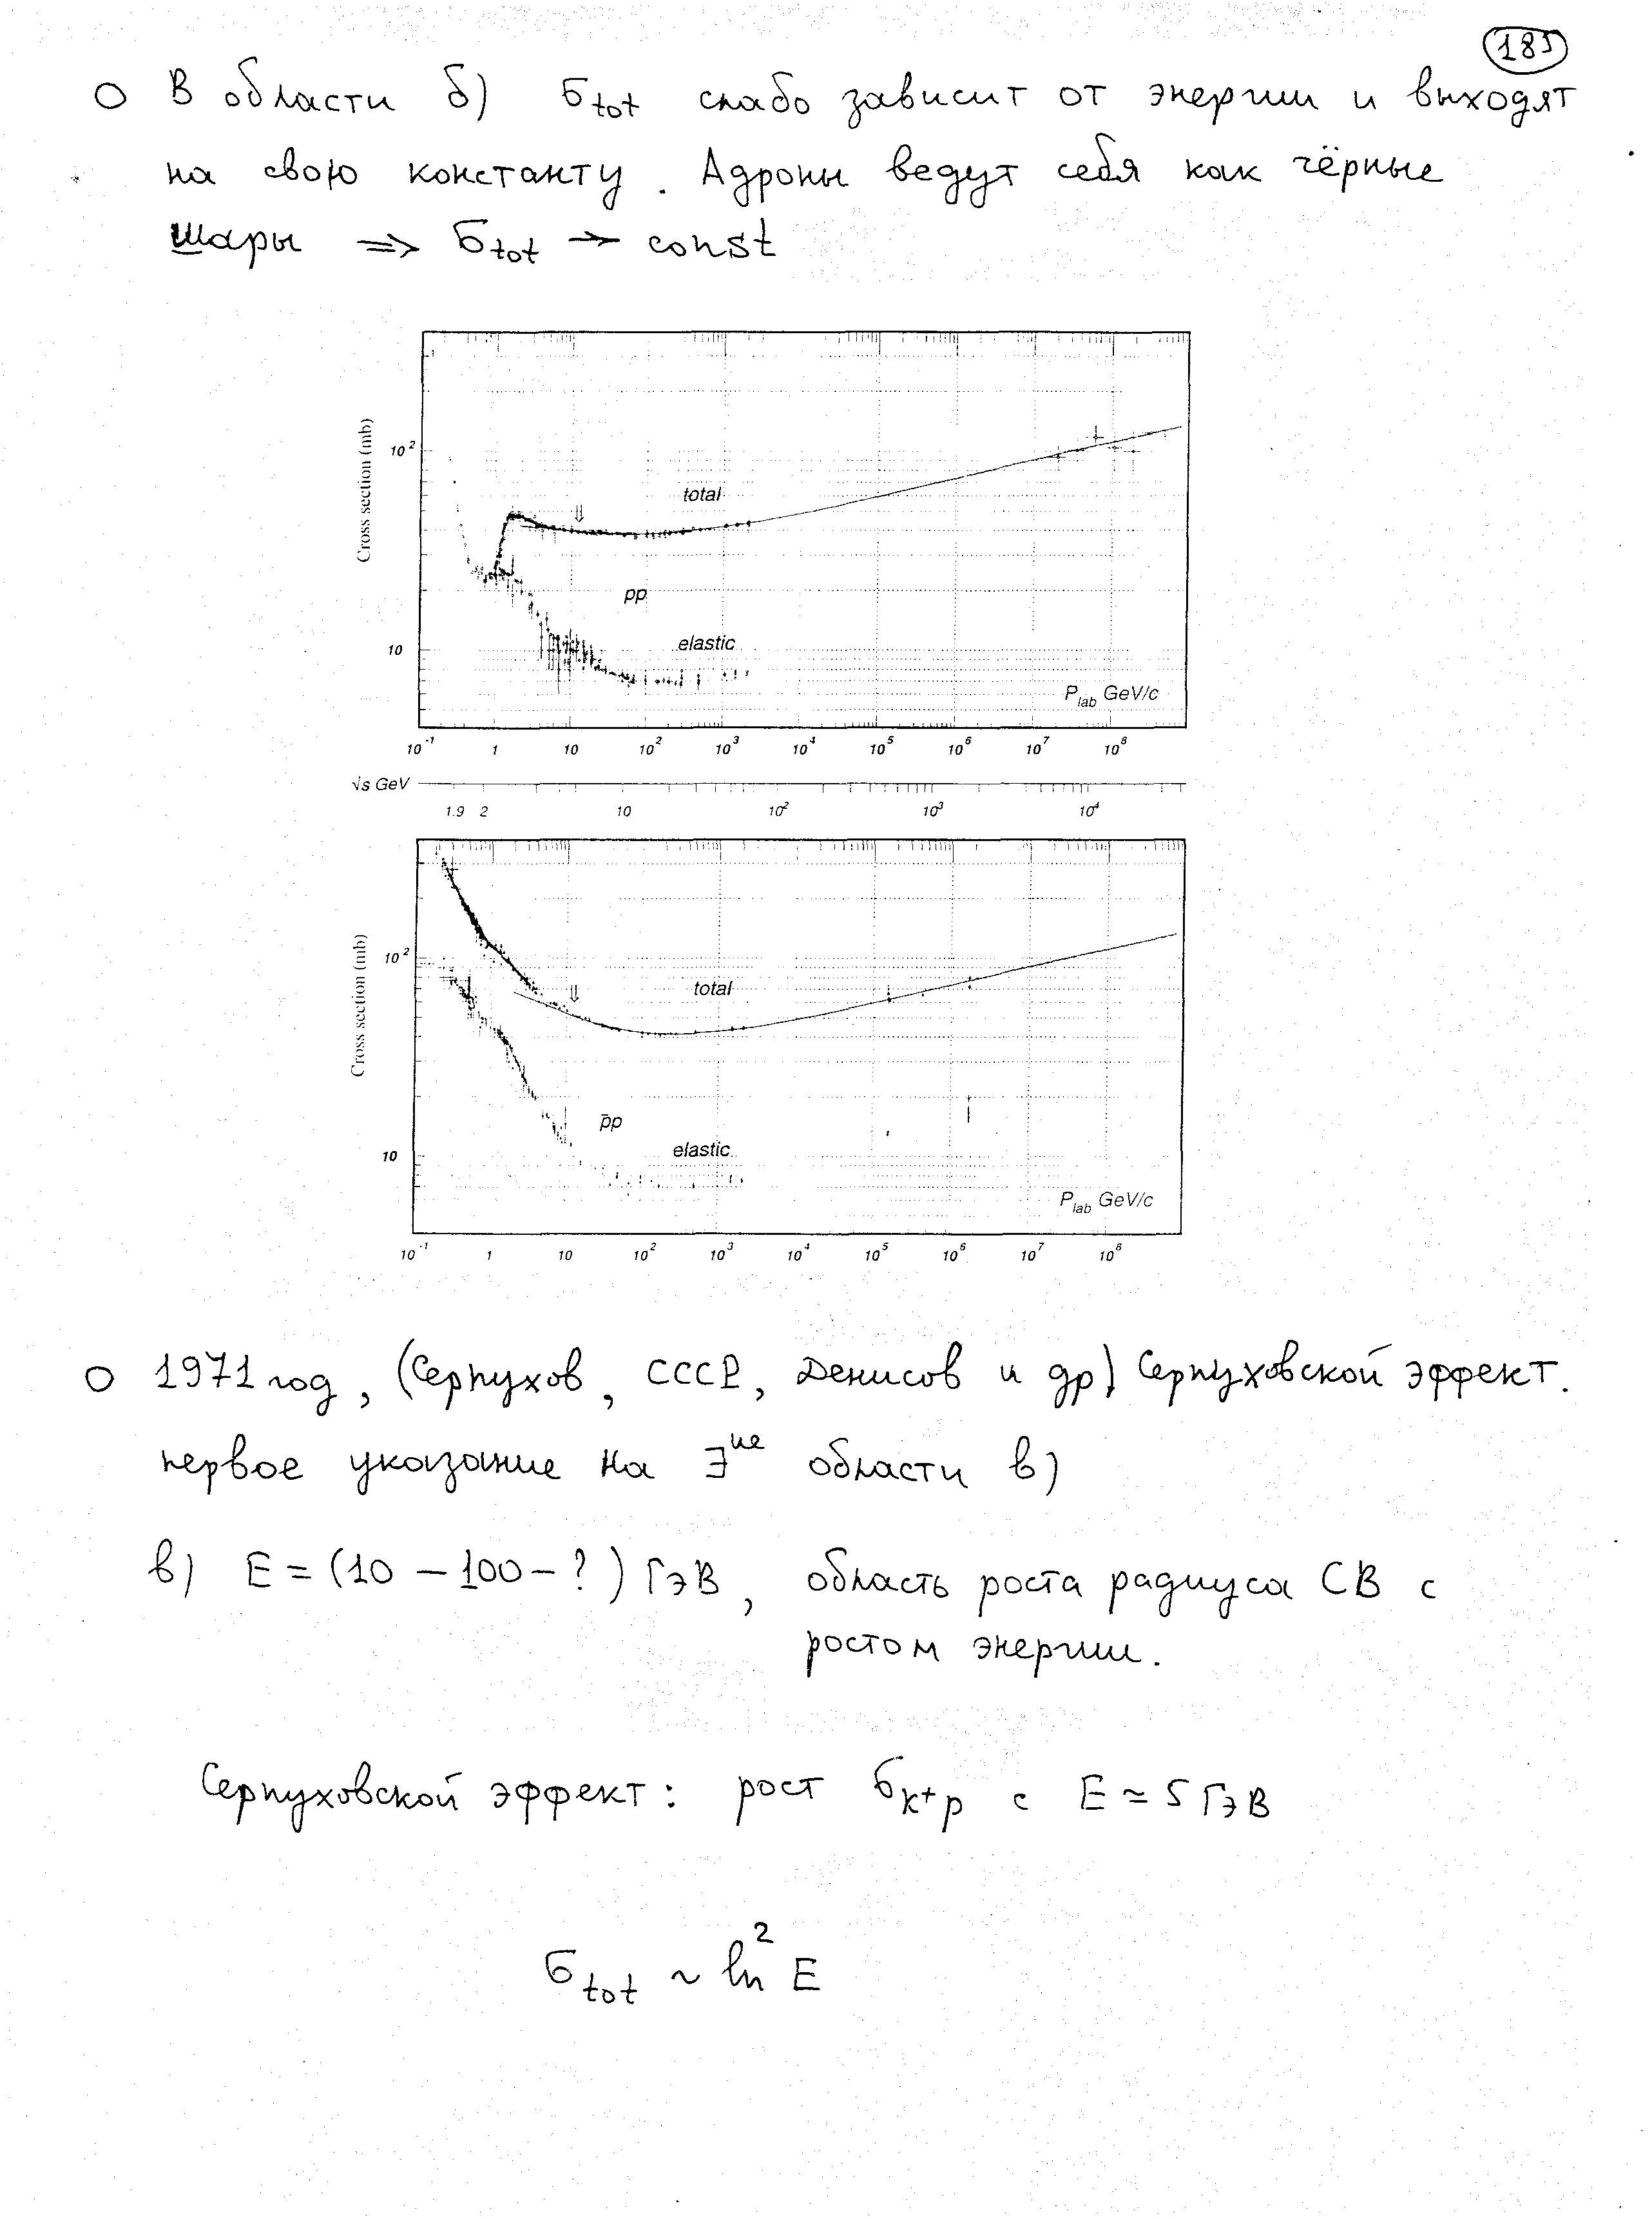 185
○ В области б) σtot слабо зависит от энергии и выходят
на свою константу. Адроны ведут себя как чёрные
шары => σtot → const
Cross section (mb)
10²
total
⇓
pp
10
elastic
Plab GeV/c
10⁻¹ 1 10 10² 10³ 10⁴ 10⁵ 10⁶ 10⁷ 10⁸
√s GeV
1.9 2 10 10² 10³ 10⁴
Cross section (mb)
10²
total
⇓
p̄p
10
elastic
Plab GeV/c
10⁻¹ 1 10 10² 10³ 10⁴ 10⁵ 10⁶ 10⁷ 10⁸
○ 1971 год, (Серпухов, СССР, Денисов и др) Серпуховской эффект.
первое указание на ∃ⁱᵉ области в)
в) E = (10 – 100 – ?) ГэВ, область роста радиуса СВ с
ростом энергии.
Серпуховской эффект: рост σK⁺p с E ≃ 5 ГэВ
σtot ~ ln² E